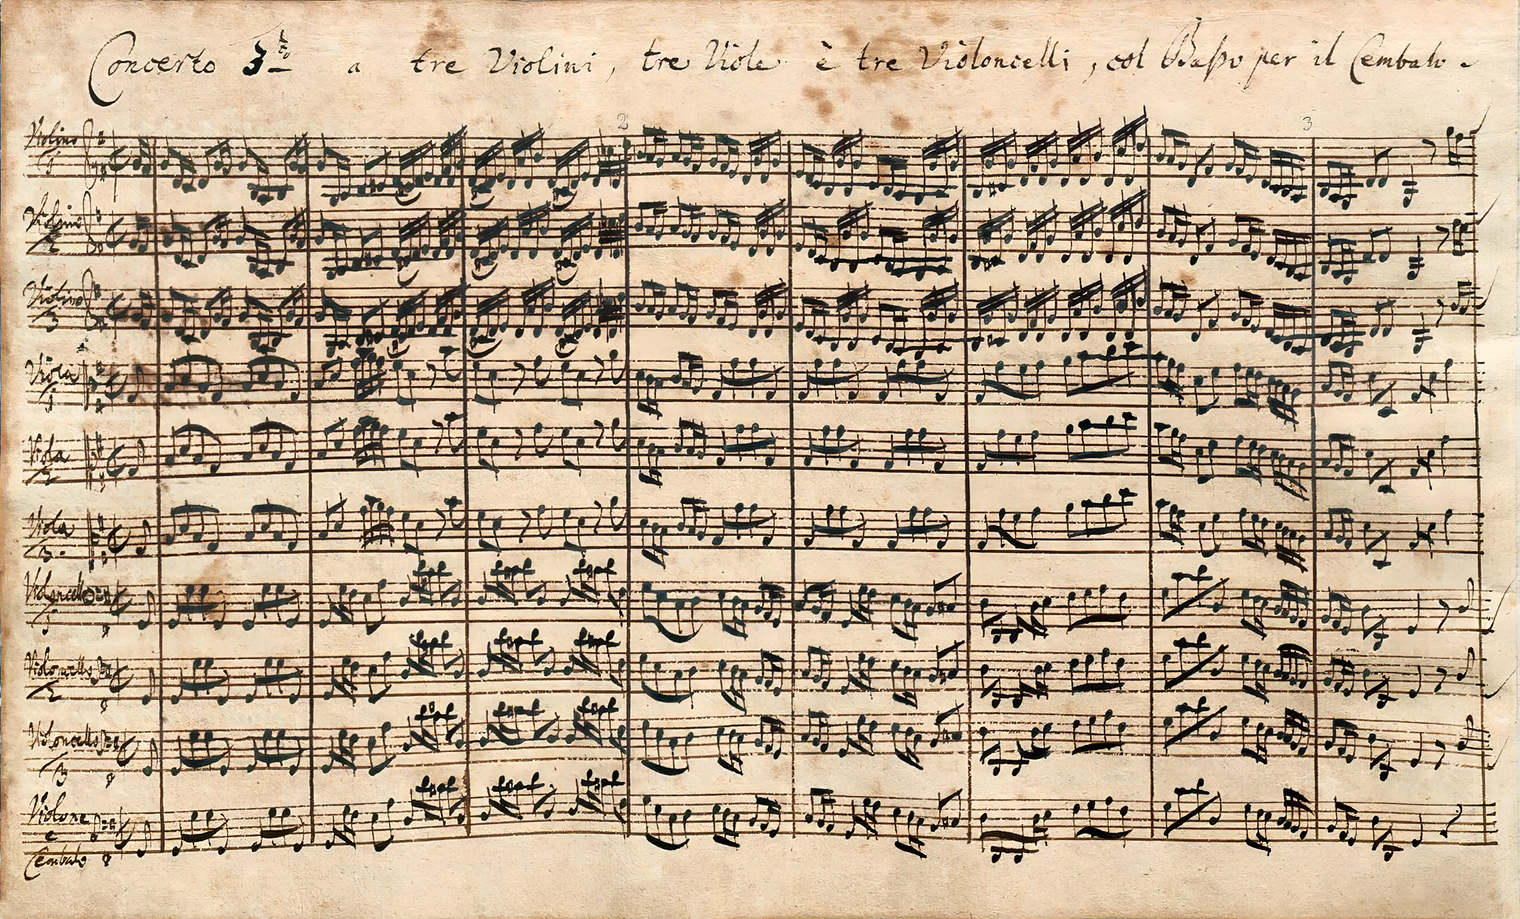 Concerto 3tzo a tre Violini, tre Viole è tre Violoncelli, col Baßo per il Cembalo.
2 3
Violino
1
Violino
2
Violino
3
Viola
1
Viola
2
Viola
3.
Violoncello
1
Violoncello
2
Violoncello
3
Violone
e
Cembalo